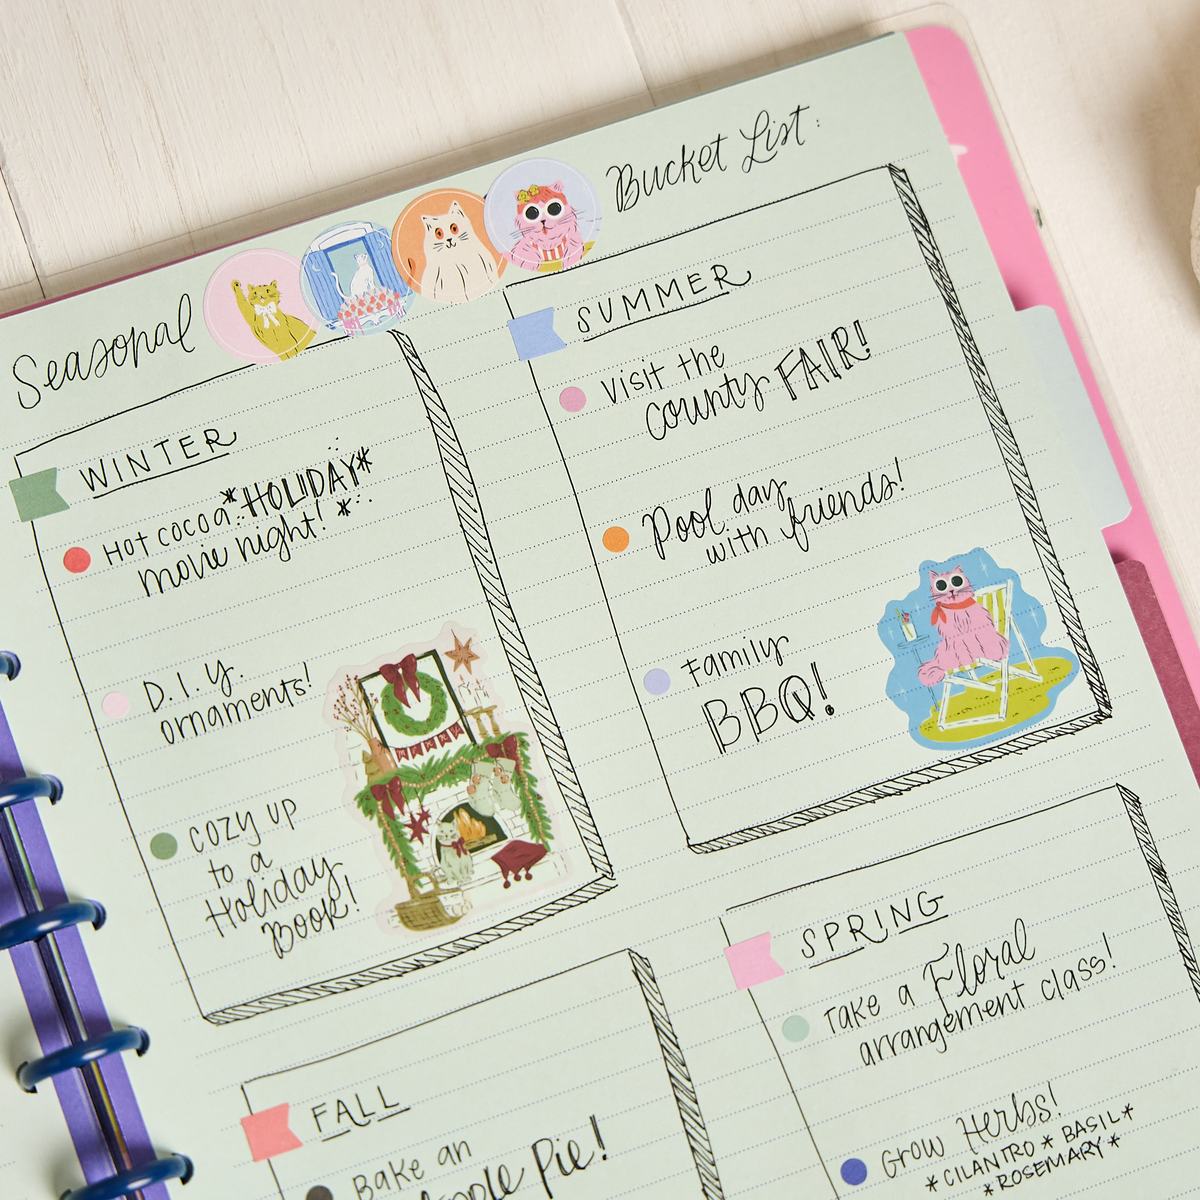 Seasonal Bucket List:
WINTER
Hot cocoa *HOLIDAY*
movie night! *
D.I.Y.
ornaments!
Cozy up
to a
Holiday
Book!
SUMMER
Visit the
county FAIR!
Pool day
with friends!
Family
BBQ!
FALL
Bake an
Apple Pie!
SPRING
Take a Floral
arrangement class!
Grow Herbs!
*CILANTRO * BASIL*
*ROSEMARY*